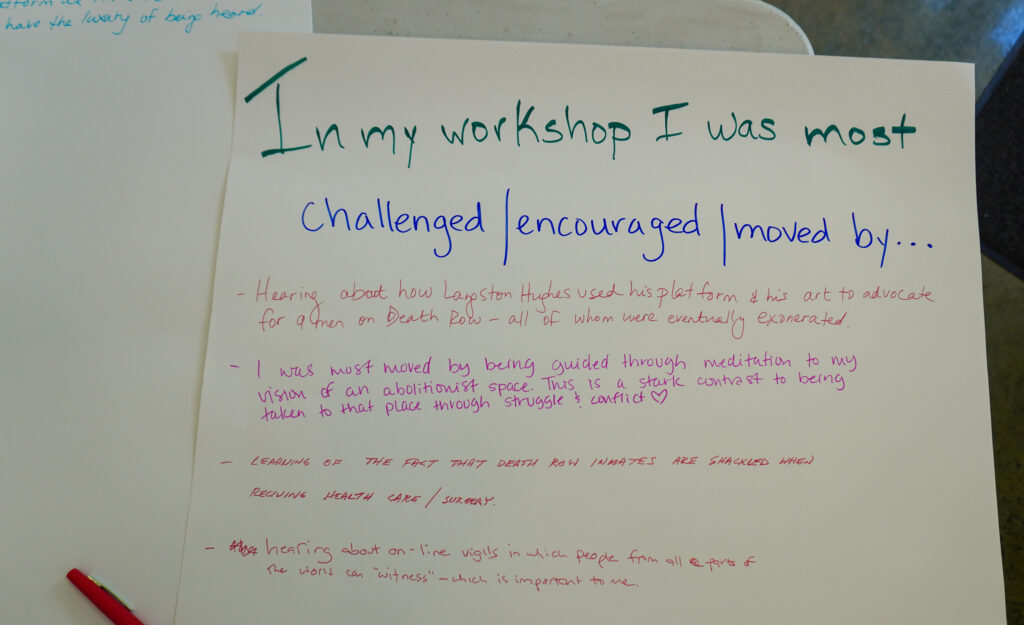 have the luxury of being heard.
In my workshop I was most
challenged/encouraged/moved by...
- Hearing about how Langston Hughes used his platform & his art to advocate
for 9 men on Death Row - all of whom were eventually exonerated.
- I was most moved by being guided through meditation to my
vision of an abolitionist space. This is a stark contrast to being
taken to that place through struggle & conflict ♡
- LEARNING OF THE FACT THAT DEATH ROW INMATES ARE SHACKLED WHEN
RECIVING HEALTH CARE/SURGERY.
- hearing about on-line vigils in which people from all parts of
the world can "witness" - which is important to me.